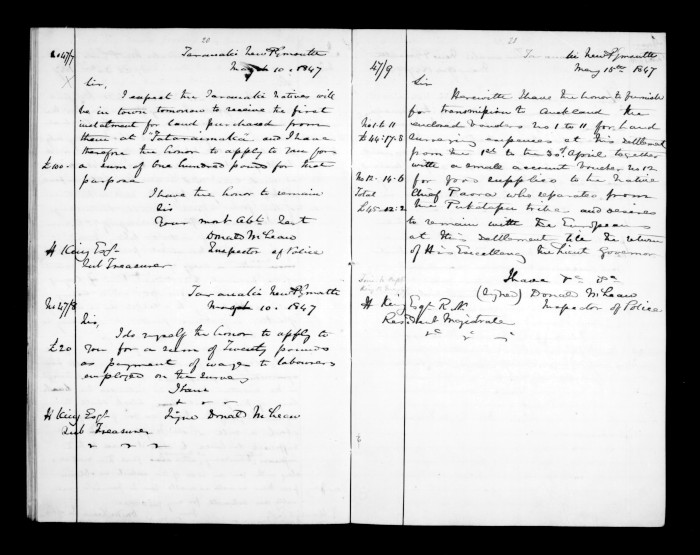 20
No 47/7
Taranaki New Plymouth
10. 1847
Sir,
I expect the Taranaki Natives will
be in town tomorrow to receive the first
instalment for land purchased from
them at "Tataraimaka" and I have
therefore the honor to apply to you for
£100- a sum of one hundred pounds for that
purpose
I have the honor to remain
Sir
Your most Obt Sert
Donald McLean
H King Esqr Inspector of Police
Sub Treasurer
Taranaki New Plymouth
No 47/8
10. 1847
Sir,
I do myself the honor to apply to
£20 you for a sum of Twenty pounds
as payment of wages to labourers
employed on the survey
I have
H King Esqr Signed Donald McLean
Sub Treasurer
21
47/9
New Plymouth
May 15th 1847
Sir
Herewith I have the honor to furnish
for transmission to Auckland the
No 1 to 11 enclosed Vouchers No 1 to 11 for Land
£44-17-8 surveying expenses at this settlement
from the 1st to the 30th April together
with a small account Voucher No 12
No 12-14-6 for food supplies to the Native
Total Chief Paora who separated from
£45-12-2 the tribe and desires
to remain with the Europeans
at this settlement till the return
of His Excellency the Lieut Governor
I have &c &c
(Signed) Donald McLean
H King Esqr R.N. Inspector of Police
Resident Magistrate